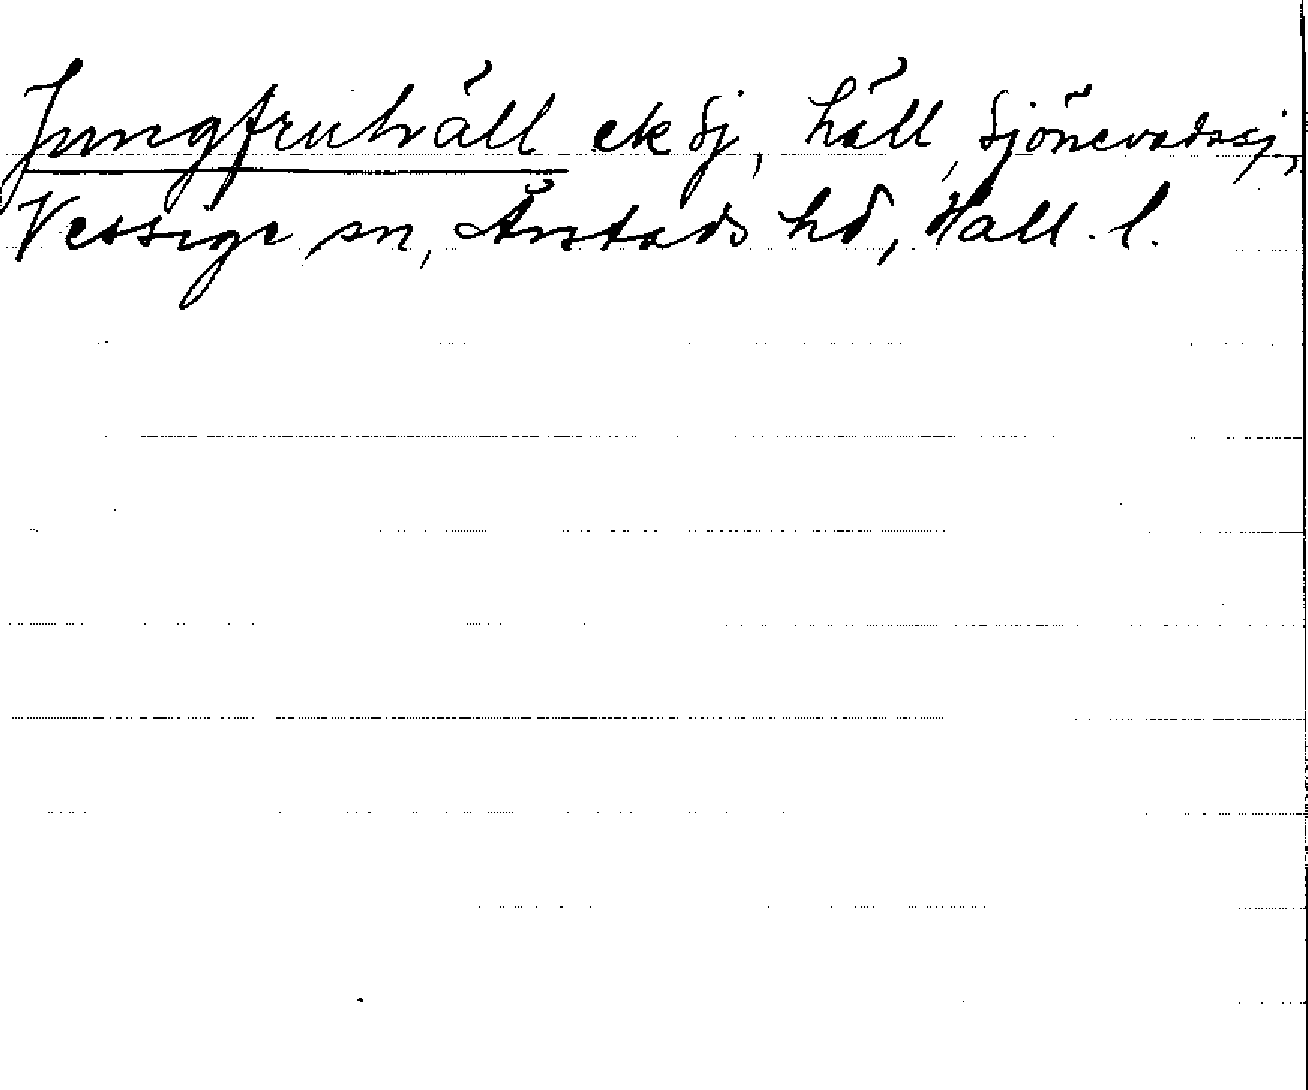 Jungfruhäll ek Sj, häll, Sjönevadssj,
Vessige sn, Årstads hd, Hall. l.